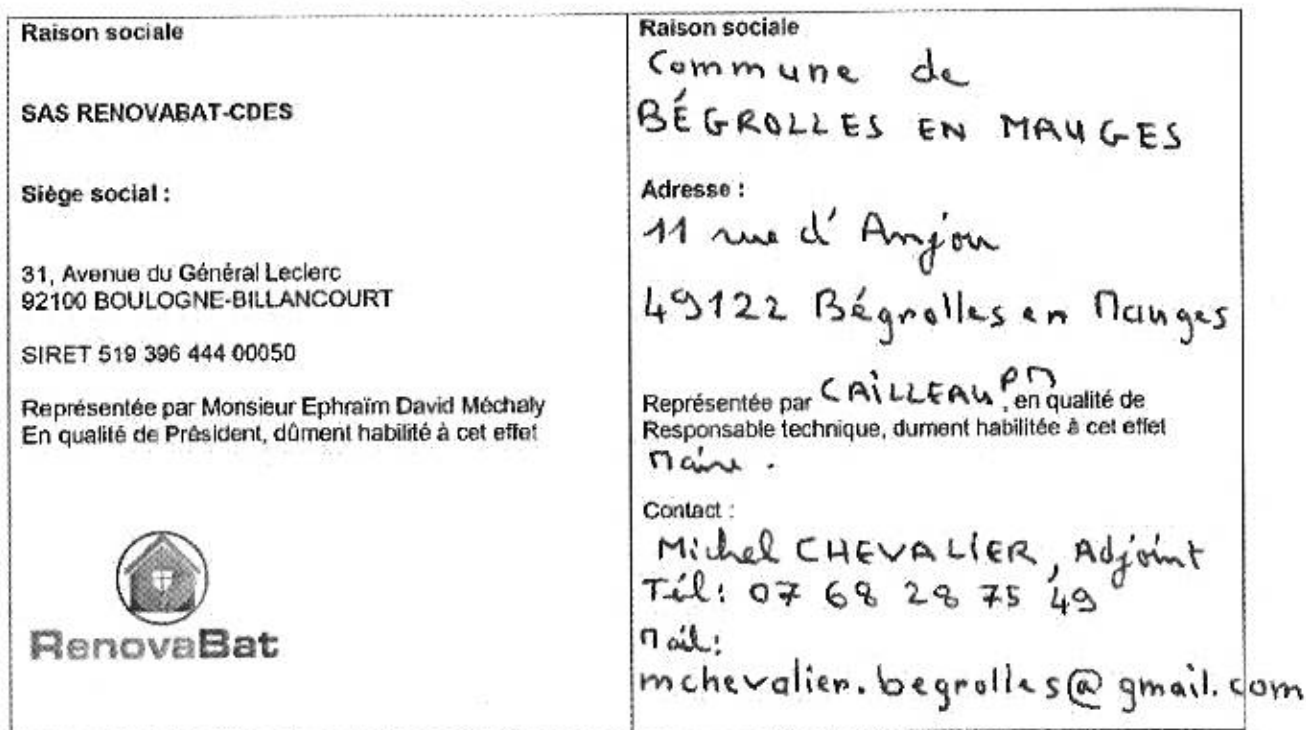 Raison sociale
SAS RENOVABAT-CDES
Siège social :
31, Avenue du Général Leclerc
92100 BOULOGNE-BILLANCOURT
SIRET 519 396 444 00050
Représentée par Monsieur Ephraïm David Méchaly
En qualité de Président, dûment habilité à cet effet
RenovaBat
Raison sociale
Commune de
BÉGROLLES EN MAUGES
Adresse :
11 rue d'Anjou
49122 Bégrolles en Mauges
Représentée par CAILLEAU PM, en qualité de
Responsable technique, dument habilitée à cet effet
Maire.
Contact :
Michel CHEVALIER, Adjoint
Tél: 07 68 28 75 49
Mail:
mchevalier.begrolles@gmail.com